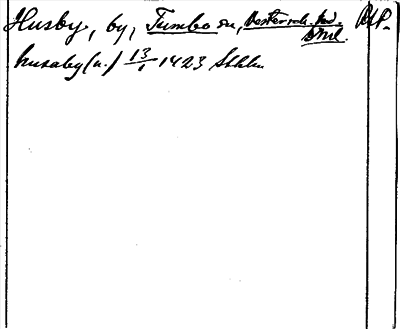 Husby, by, Tumbo sn, Västerrek. hd. RAP.
Sml.
husaby (u.) 13/1 1423 Sthlm